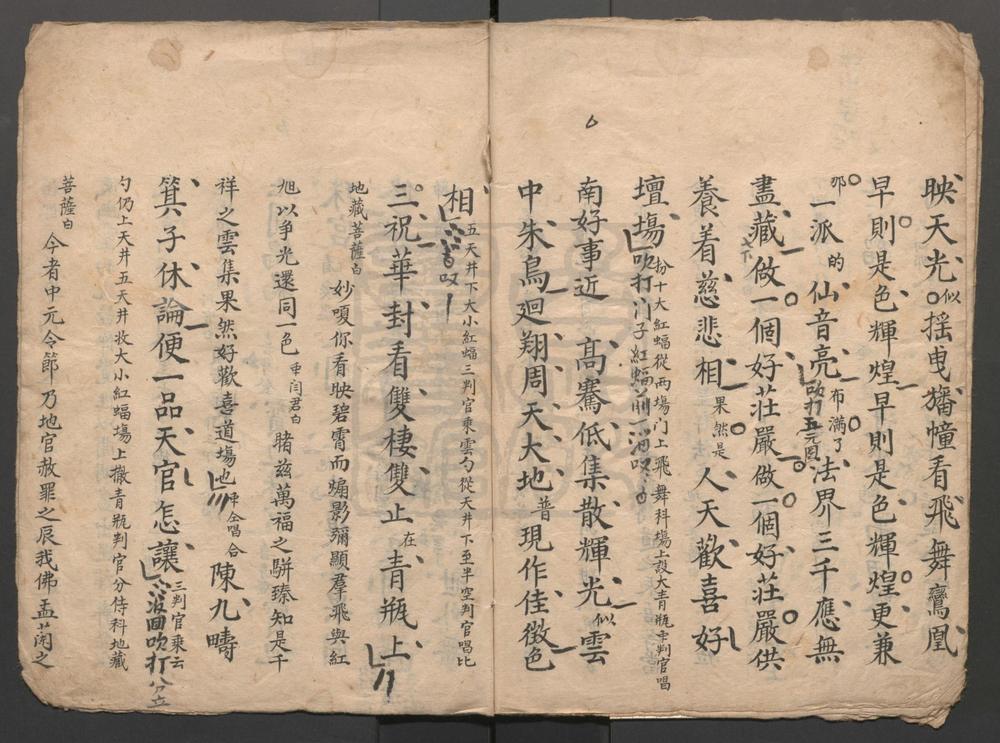 映天光似搖曳旛幢看飛舞鸞凰
早則是色輝煌早則是色輝煌更兼
那一派的仙音亮吹打五元回布滿了法界三千應無
盡藏做一個好莊嚴做一個好莊嚴供
養着慈悲相果然是人天歡喜好
壇場吹打門子紅蝠扮十大紅蝠從兩場門上飛舞科場上設大青瓶中判官唱
南好事近高騫低集散輝光似雲
中朱鳥迴翔周天大地普現作佳徵色
相五天井下大小紅蝠三判官乘雲勺從天井下至半空判官唱比
三祝華封看雙棲雙止在青瓶上
地藏菩薩白妙嗄你看映碧霄而煽影彌顯羣飛與紅
旭以爭光還同一色中閆君白睹茲萬福之駢臻知是千
祥之雲集果然好歡喜道場也中仝唱合陳九疇
箕子休論便一品天官怎讓三判官乘云
勺仍上天井五天井收大小紅蝠場上撤青瓶判官分侍科地藏
菩薩白今者中元令節乃地官赦罪之辰我佛盂蘭之